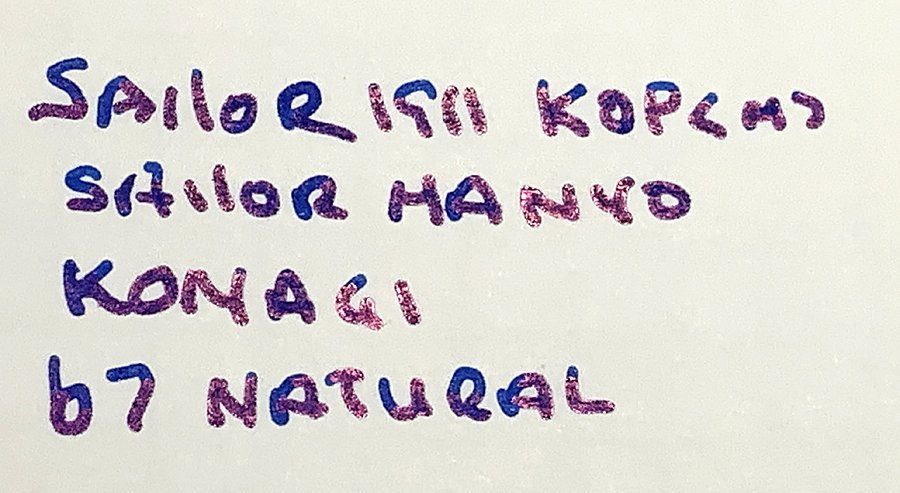 SAILOR 1911
SAILOR MANYO
KONAGI
67 NATURAL